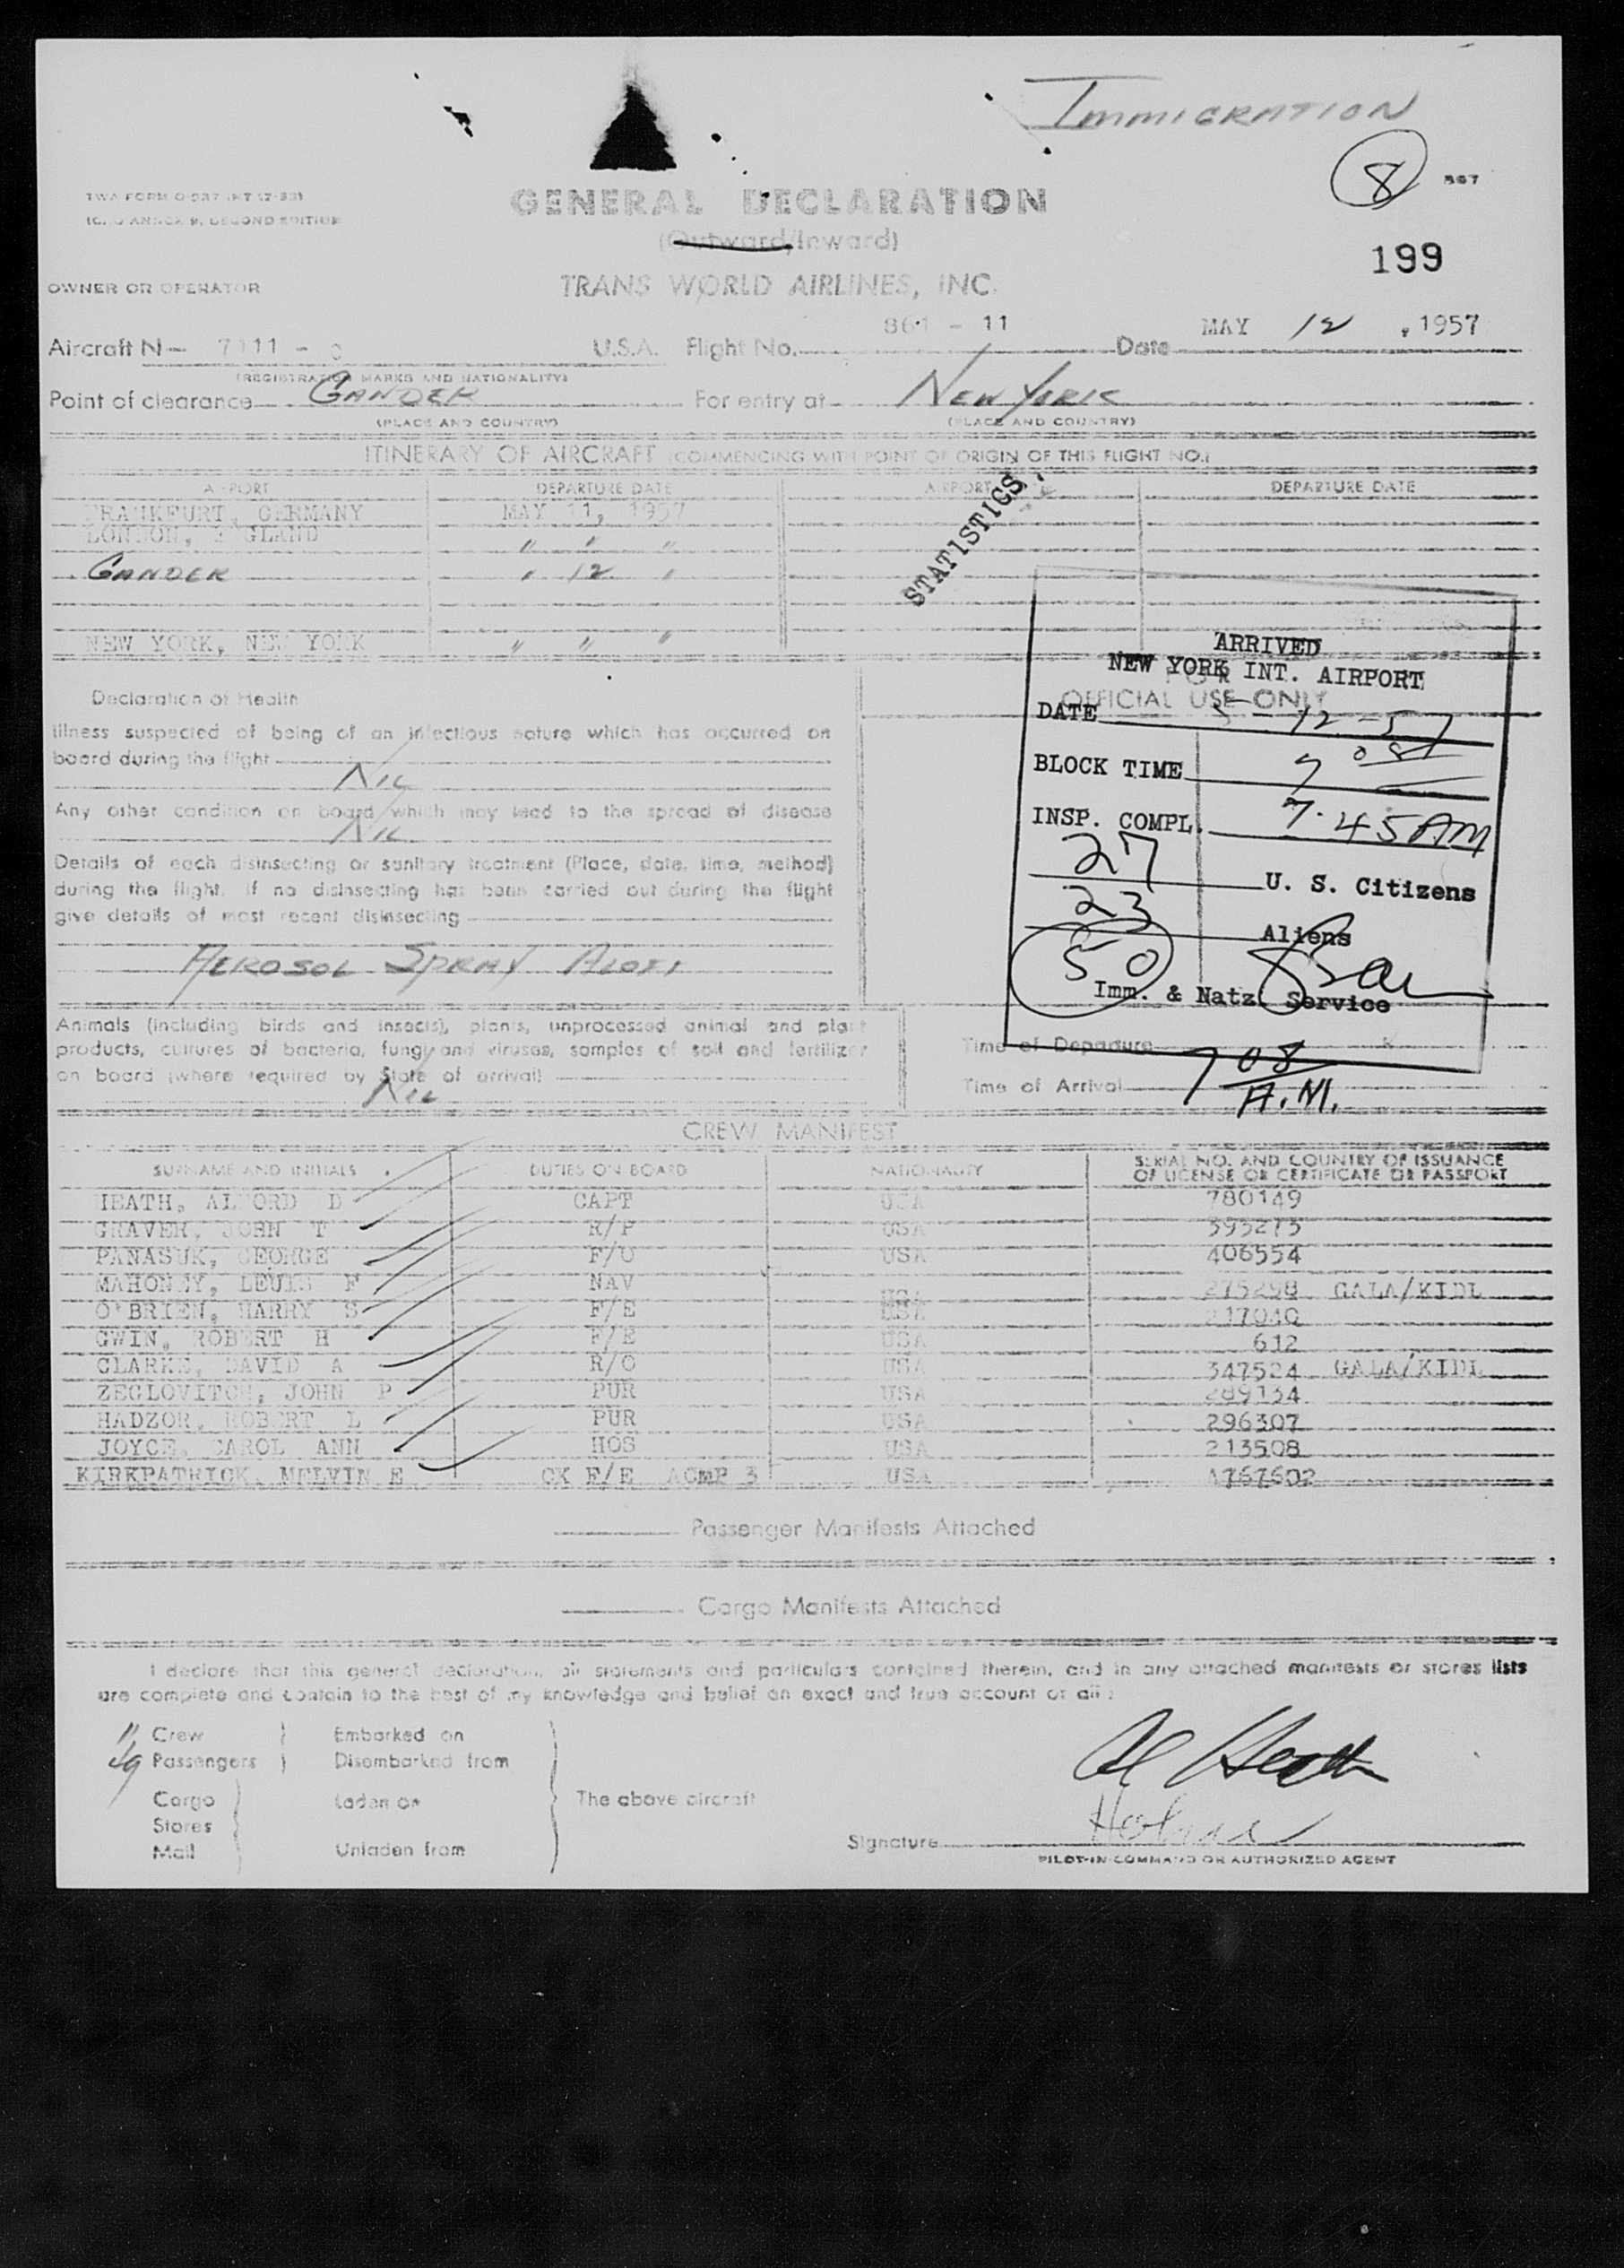 IMMIGRATION
8
567
TWA FORM
GENERAL DECLARATION
(Outward/Inward)
199
OWNER OR OPERATOR
TRANS WORLD AIRLINES, INC.
861 - 11
MAY 12, 1957
Aircraft N- U.S.A. Flight No. Date
(REGISTRATION MARKS AND NATIONALITY)
Point of clearance GANDER For entry at NEW YORK
(PLACE AND COUNTRY) (PLACE AND COUNTRY)
ITINERARY OF AIRCRAFT (COMMENCING WITH POINT OF ORIGIN OF THIS FLIGHT NO.)
AIRPORT DEPARTURE DATE AIRPORT DEPARTURE DATE
FRANKFURT, GERMANY MAY 11, 1957
LONDON, ENGLAND " " "
GANDER " 12 "
NEW YORK, NEW YORK " " "
STATISTICS
ARRIVED
NEW YORK INT. AIRPORT
FOR
OFFICIAL USE ONLY
DATE 5-12-57
BLOCK TIME 7 08
INSP. COMPL. 7.45 AM
27 U. S. Citizens
23 Aliens
50
Imm. & Natz. Service
Declaration of Health
Illness suspected of being of an infectious nature which has occurred on
board during the flight
NIL
Any other condition on board which may lead to the spread of disease
NIL
Details of each disinsecting or sanitary treatment (Place, date, time, method)
during the flight. If no disinsecting has been carried out during the flight
give details of most recent disinsecting
AEROSOL SPRAY ALOFT
Animals (including birds and insects), plants, unprocessed animal and plant
products, cultures of bacteria, fungi and viruses, samples of soil and fertilizer
on board (where required by State of arrival)
NIL
Time of Departure
Time of Arrival 708 A.M.
CREW MANIFEST
SURNAME AND INITIALS DUTIES ON BOARD NATIONALITY SERIAL NO. AND COUNTRY OF ISSUANCE
OF LICENSE OR CERTIFICATE OR PASSPORT
HEATH, ALFORD D CAPT USA 780149
GRAVER, JOHN T R/P USA 393273
PANASUK, GEORGE F/O USA 406554
MAHONEY, LEUIS F NAV USA 275298 GALA/KIDL
O'BRIEN, HARRY S F/E USA
GWIN, ROBERT H F/E USA 612
CLARKE, DAVID A R/O USA 347524 GALA/KIDL
ZEGLOVITCH, JOHN P PUR USA 289134
HADZOR, ROBERT L PUR USA 296307
JOYCE, CAROL ANN HOS USA 213508
KIRKPATRICK, MELVIN E CK F/E ACMP 3 USA 1767602
Passenger Manifests Attached
Cargo Manifests Attached
I declare that this general declaration, all statements and particulars contained therein, and in any attached manifests or stores lists
are complete and contain to the best of my knowledge and belief an exact and true account of all:
11 Crew Embarked on
49 Passengers Disembarked from
Cargo Laden on The above aircraft
Stores
Mail Unladen from
Al Heath
Signature
PILOT-IN-COMMAND OR AUTHORIZED AGENT